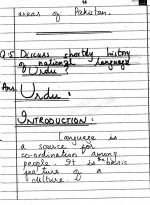 14
areas of Pakistan.
Q5 Discuss shortly history
of national language
Urdu?
Ans. Urdu:
INTRODUCTION:
Language is
a source for
co-ordination among
people. It is basic
feature of a
culture.